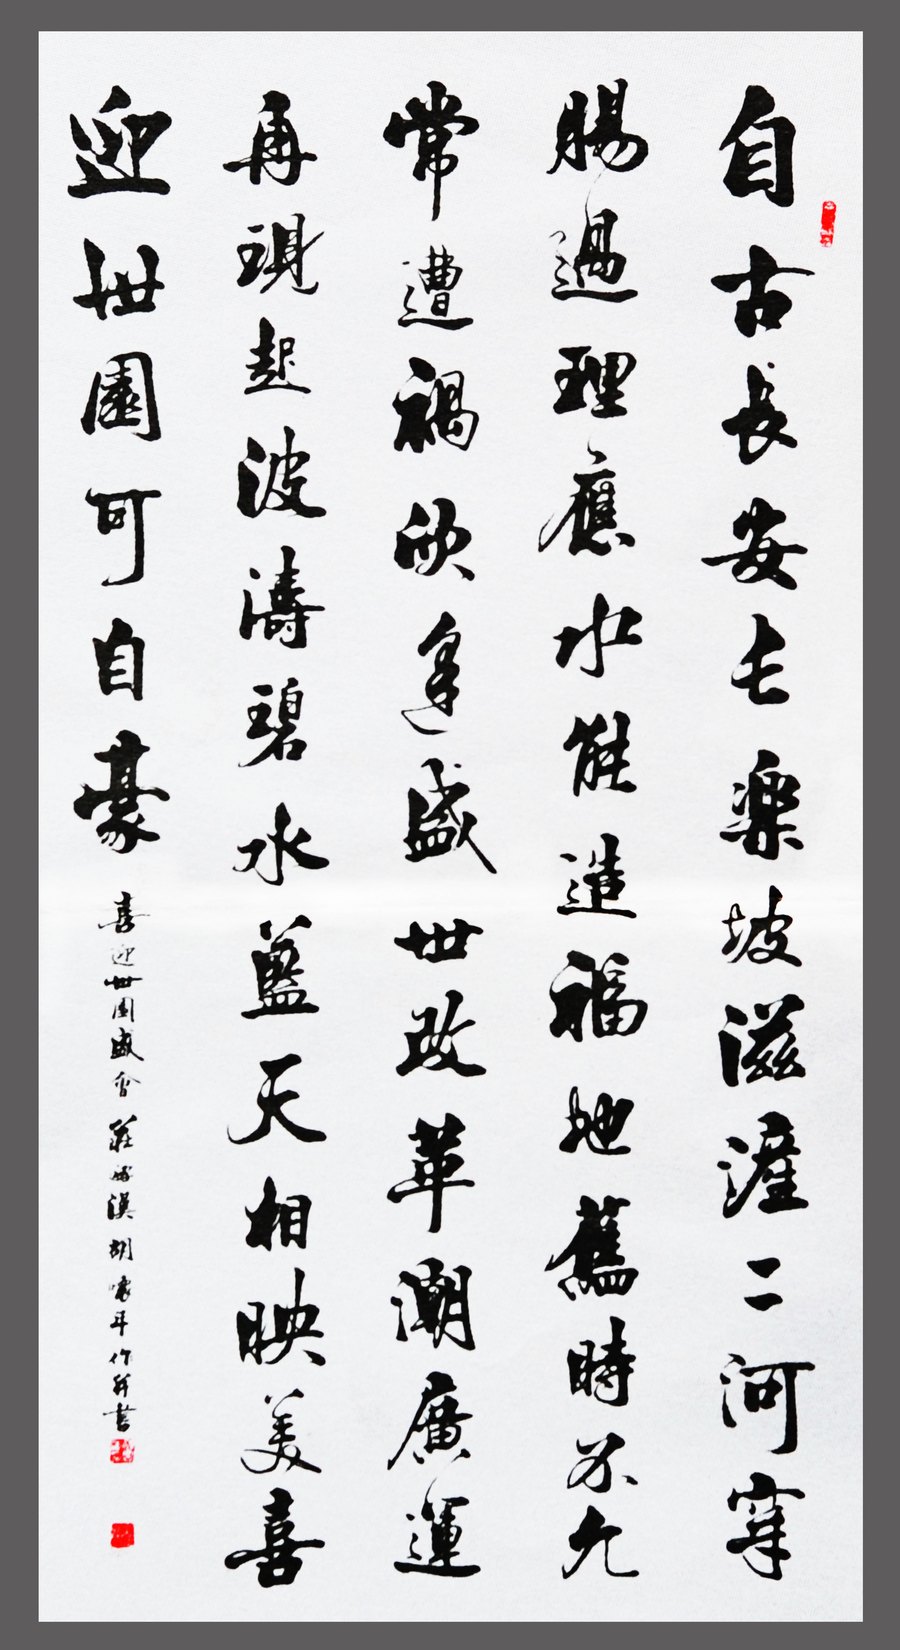 自古長安长樂坡滋滻二河穿
腸過理應水能造福地舊時不允
常遭禍欣逢盛世改革潮廣運
再現起波濤碧水藍天相映美喜
迎世園可自豪
喜迎世園盛會 莊漢胡年作并書